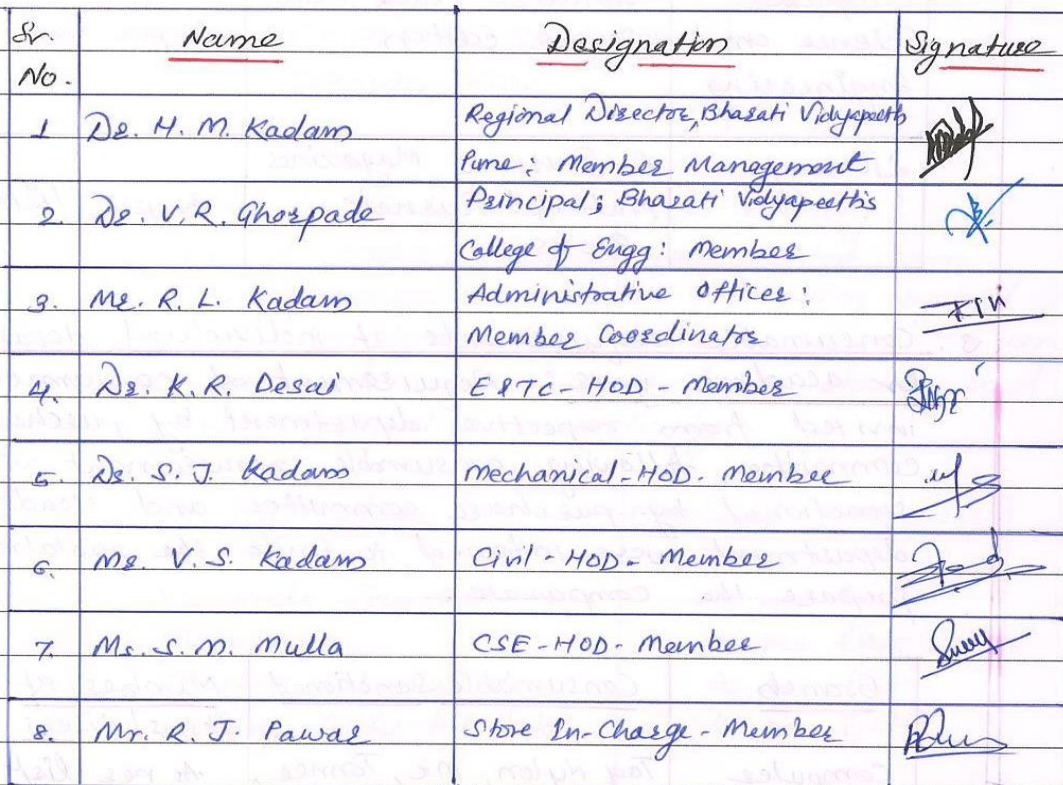 Sr. Name Designation Signature
No.
1 Dr. H. M. Kadam Regional Director, Bharati Vidyapeeth
Pune; Member Management
2. Dr. V. R. Ghorpade Principal; Bharati Vidyapeeth's
College of Engg: Member
3. Mr. R. L. Kadam Administrative Officer:
Member Coordinator
4. Dr. K. R. Desai E&TC-HOD-Member
5. Dr. S. J. Kadam Mechanical-HOD-Member
6. Mr. V. S. Kadam Civil HOD-Member
7. Ms. S. M. Mulla CSE-HOD-Member
8. Mr. R. J. Pawar Store In-Charge-Member